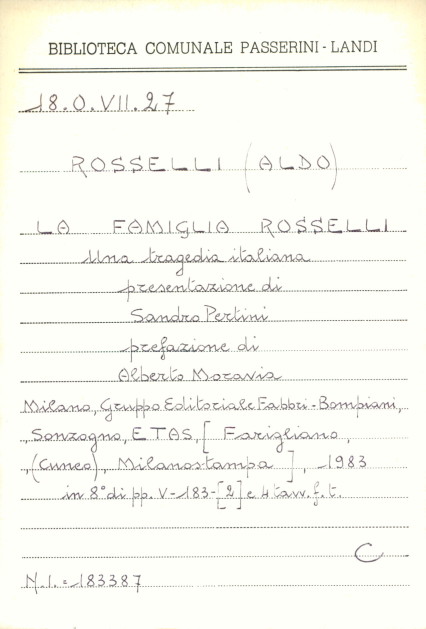 BIBLIOTECA COMUNALE PASSERINI - LANDI
18.O.VII.27
ROSSELLI (ALDO)
LA FAMIGLIA ROSSELLI
Una tragedia italiana
presentazione di
Sandro Pertini
prefazione di
Alberto Moravia
Milano, Gruppo Editoriale Fabbri-Bompiani,
Sonzogno, ETAS, [Farigliano,
(Cuneo), Milanostampa], 1983
in 8° di pp. V-183-[2] e 4 tavv. f. t.
C
N.I. = 183387